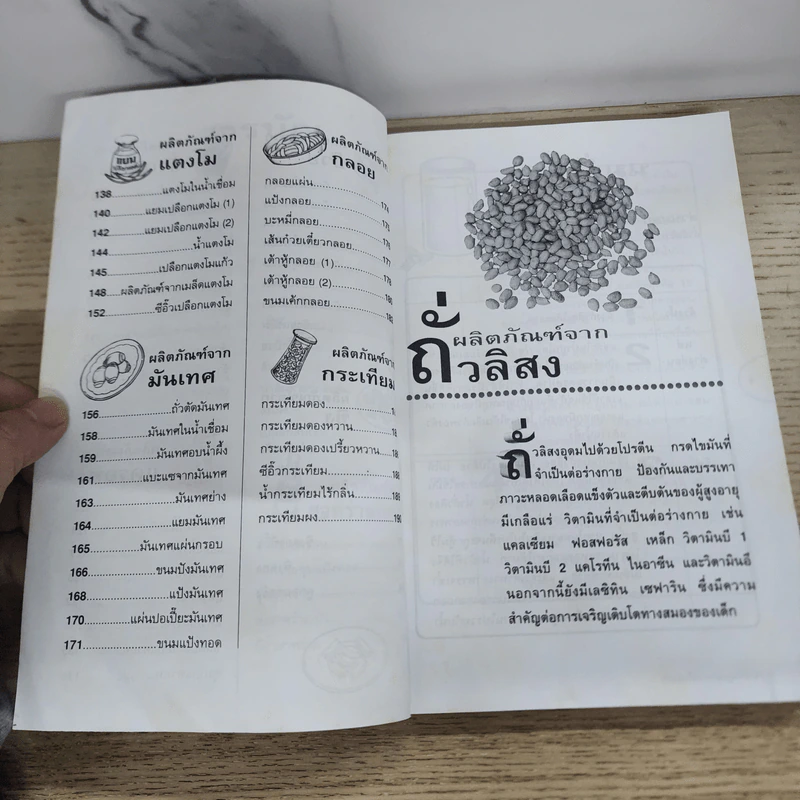 ผลิตภัณฑ์จาก
แตงโม
138...............แตงโมในน้ำเชื่อม
140.........แยมเปลือกแตงโม (1)
142.........แยมเปลือกแตงโม (2)
144.........................น้ำแตงโม
145...............เปลือกแตงโมแก้ว
148....ผลิตภัณฑ์จากเมล็ดแตงโม
152............ซีอิ๊วเปลือกแตงโม
ผลิตภัณฑ์จาก
มันเทศ
156....................ถั่วตัดมันเทศ
158...............มันเทศในน้ำเชื่อม
159.................มันเทศอบน้ำผึ้ง
161...............แบะแซจากมันเทศ
163........................มันเทศย่าง
164........................แยมมันเทศ
165...............มันเทศแผ่นกรอบ
166.................ขนมปังมันเทศ
168........................แป้งมันเทศ
170............แผ่นปอเปี๊ยะมันเทศ
171....................ขนมแป้งทอด
ผลิตภัณฑ์จาก
กลอย
กลอยแผ่น
แป้งกลอย
บะหมี่กลอย
เส้นก๋วยเตี๋ยวกลอย
เต้าหู้กลอย (1)
เต้าหู้กลอย (2)
ขนมเค้กกลอย
ผลิตภัณฑ์จาก
กระเทียม
กระเทียมดอง
กระเทียมดองหวาน
กระเทียมดองเปรี้ยวหวาน
ซีอิ๊วกระเทียม
น้ำกระเทียมไร้กลิ่น
กระเทียมผง
ผลิตภัณฑ์จาก
ถั่วลิสง
ถั่วลิสงอุดมไปด้วยโปรตีน กรดไขมันที่
จำเป็นต่อร่างกาย ป้องกันและบรรเทา
ภาวะหลอดเลือดแข็งตัวและตีบตันของผู้สูงอายุ
มีเกลือแร่ วิตามินที่จำเป็นต่อร่างกาย เช่น
แคลเซียม ฟอสฟอรัส เหล็ก วิตามินบี 1
วิตามินบี 2 แคโรทีน ไนอาซีน และวิตามินอี
นอกจากนี้ยังมีเลซิทิน เซฟาริน ซึ่งมีความ
สำคัญต่อการเจริญเติบโตทางสมองของเด็ก